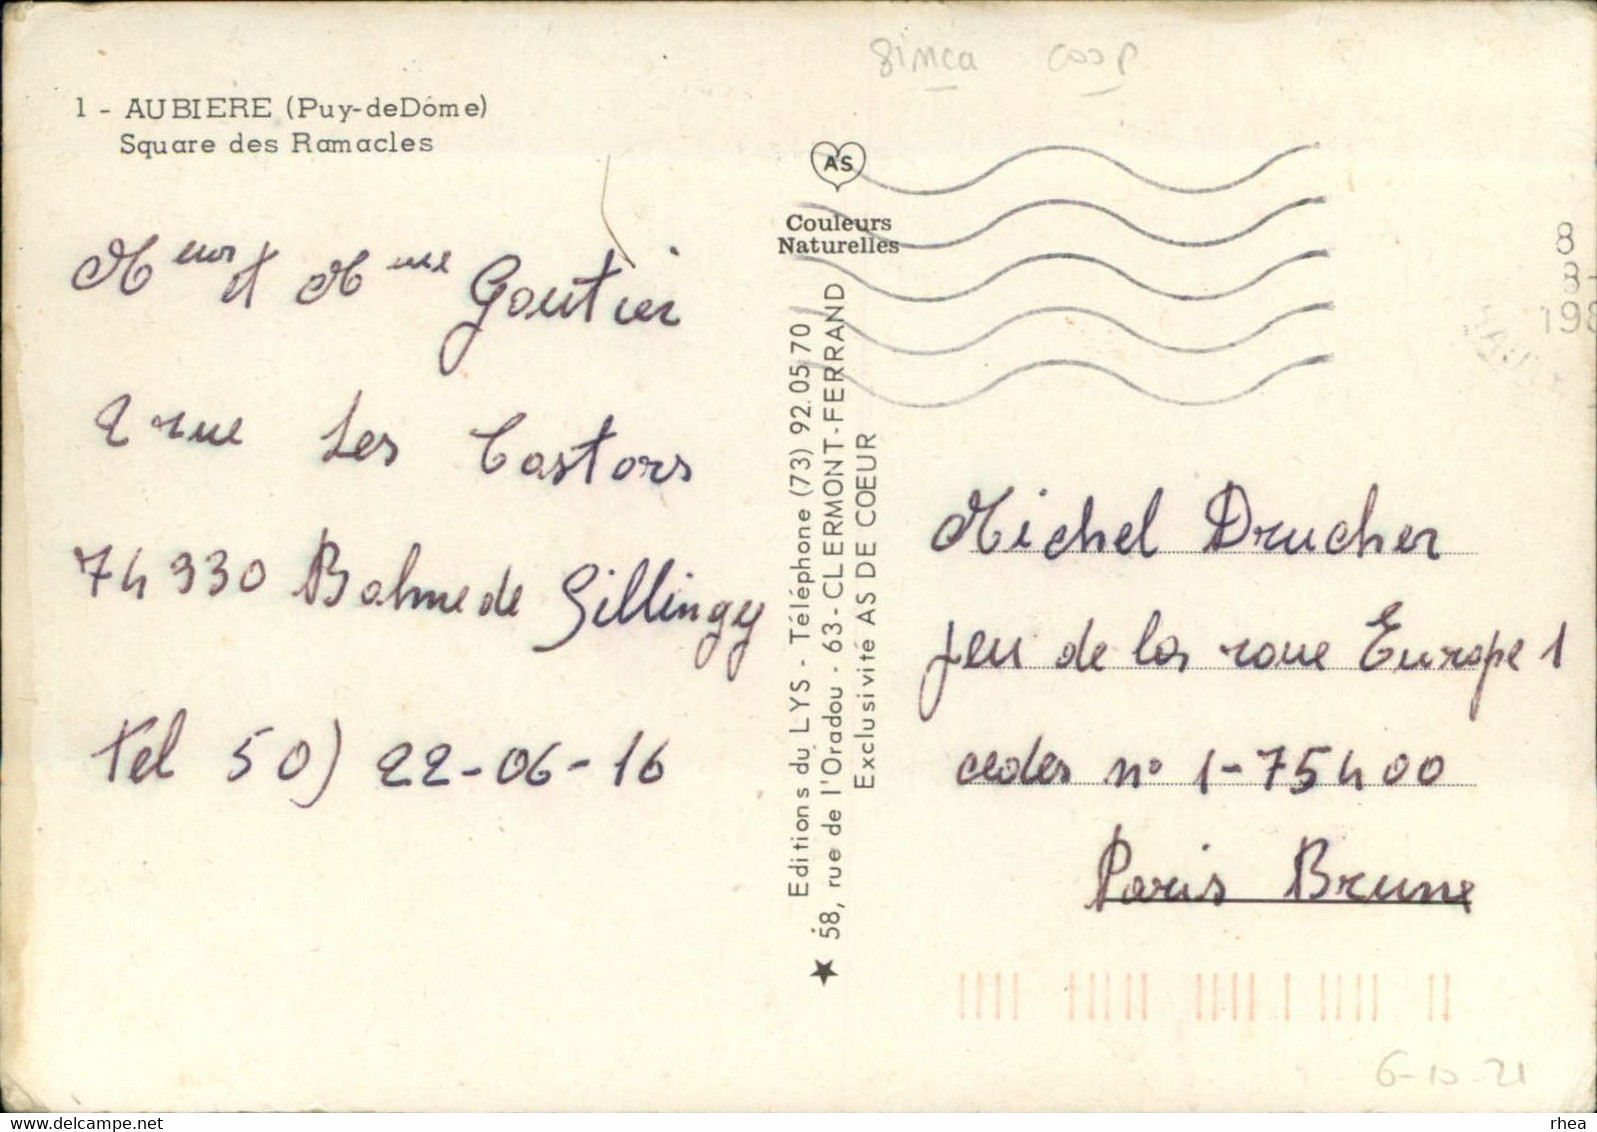 simca coop
1 - AUBIERE (Puy-deDôme)
Square des Ramacles
Meur et Mme Goutier
2 rue Les Castors
74330 Balme de Sillingy
Tel 50) 22-06-16
AS
Couleurs
Naturelles
Editions du LYS - Téléphone (73) 92.05.70
★ 58, rue de l'Oradou - 63 - CLERMONT-FERRAND
Exclusivité AS DE CŒUR
8
8-
198
Michel Drucher
jeu de la roue Europe 1
cedes n° 1-75400
Paris Brune
6-10-21
rhea